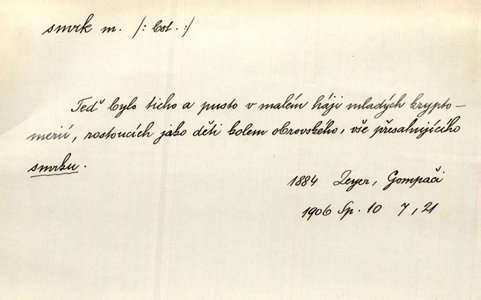 smrk m. /: bot. :/
Teď bylo ticho a pusto v malém háji mladých krypto-
merií, rostoucích jako děti kolem obrovského, vše přesahujícího
smrku.
1884 Zeyer, Gompači
1906 Sp. 10 7, 21